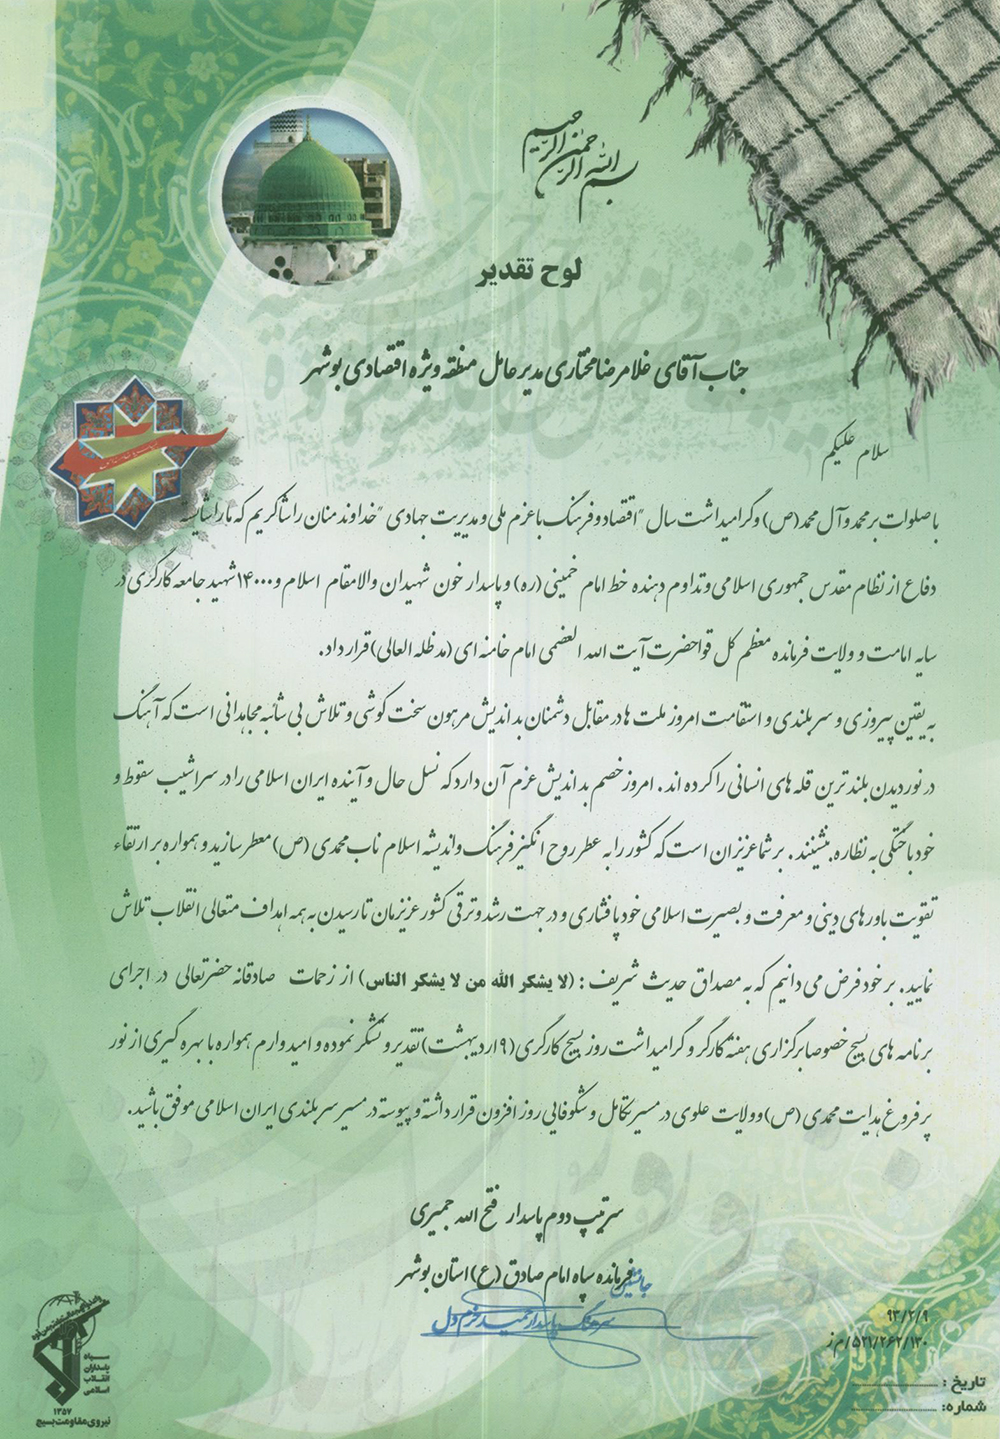 بسم الله الرحمن الرحیم
لوح تقدیر
جناب آقای غلامرضا مختاری مدیر عامل منطقه ویژه اقتصادی بوشهر
سلام علیکم
با صلوات بر محمد و آل محمد (ص) و گرامیداشت سال "اقتصاد و فرهنگ با عزم ملی و مدیریت جهادی" خداوند منان را شاکریم که ما را شایسته
دفاع از نظام مقدس جمهوری اسلامی و تداوم دهنده خط امام خمینی (ره) و پاسدار خون شهیدان والامقام اسلام و ۱۴۰۰۰ شهید جامعه کارگری در
سایه امامت و ولایت فرمانده معظم کل قوا حضرت آیت الله العضمی امام خامنه ای (مد ظله العالی) قرار داد.
به یقین پیروزی و سربلندی و استقامت امروز ملت ها در مقابل دشمنان بد اندیش مرهون سخت کوشی و تلاش بی شائبه مجاهدانی است که آهنگ
در نوردیدن بلند ترین قله های انسانی را کرده اند. امروز خصم بد اندیش عزم آن دارد که نسل حال و آینده ایران اسلامی را در سراشیب سقوط و
خود باختگی به نظاره بنشینند. بر شما عزیزان است که کشور را به عطر روح انگیز فرهنگ و اندیشه اسلام ناب محمدی (ص) معطر سازید و همواره بر ارتقاء
تقویت باورهای دینی و معرفت و بصیرت اسلامی خود پافشاری و در جهت رشد و ترقی کشور عزیزمان تا رسیدن به همه اهداف متعالی انقلاب تلاش
نمایید. بر خود فرض می دانیم که به مصداق حدیث شریف : (لا یشکر الله من لا یشکر الناس) از زحمات صادقانه حضرتعالی در اجرای
برنامه های بسیج خصوصا برگزاری هفته کارگر و گرامیداشت روز بسیج کارگری (۹ اردیبهشت) تقدیر و تشکر نموده و امیدوارم همواره با بهره گیری از نور
پر فروغ هدایت محمدی (ص) و ولایت علوی در مسیر تکامل و شکوفایی روز افزون قرار داشته و پیوسته در مسیر سربلندی ایران اسلامی موفق باشید.
سرتیپ دوم پاسدار فتح الله جمیری
جانشین فرمانده سپاه امام صادق (ع) استان بوشهر
سرهنگ پاسدار حمید خرم دل
۹۳/۲/۹
۵۲۱/۲۶۲/۱۳۰/م ز
تاریخ :
شماره:
سپاه
پاسداران
انقلاب
اسلامی
۱۳۵۷
نیروی مقاومت بسیج